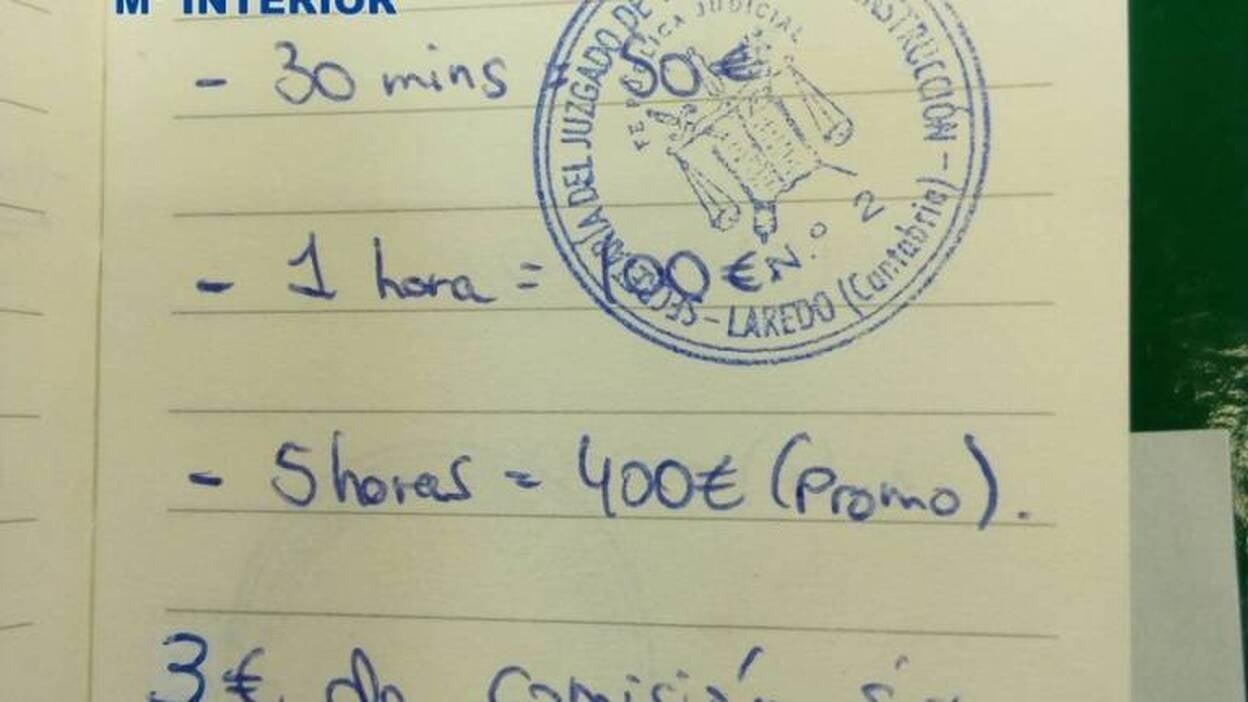 Mº INTERIOR
- 30 mins = 50 €
- 1 hora = 100 €
- 5 horas = 400€ (Promo).
3€ de comisión
SECRETARÍA DEL JUZGADO DE INSTRUCCIÓN - N.º 2 - LAREDO (Cantabria) -
FE PÚBLICA JUDICIAL